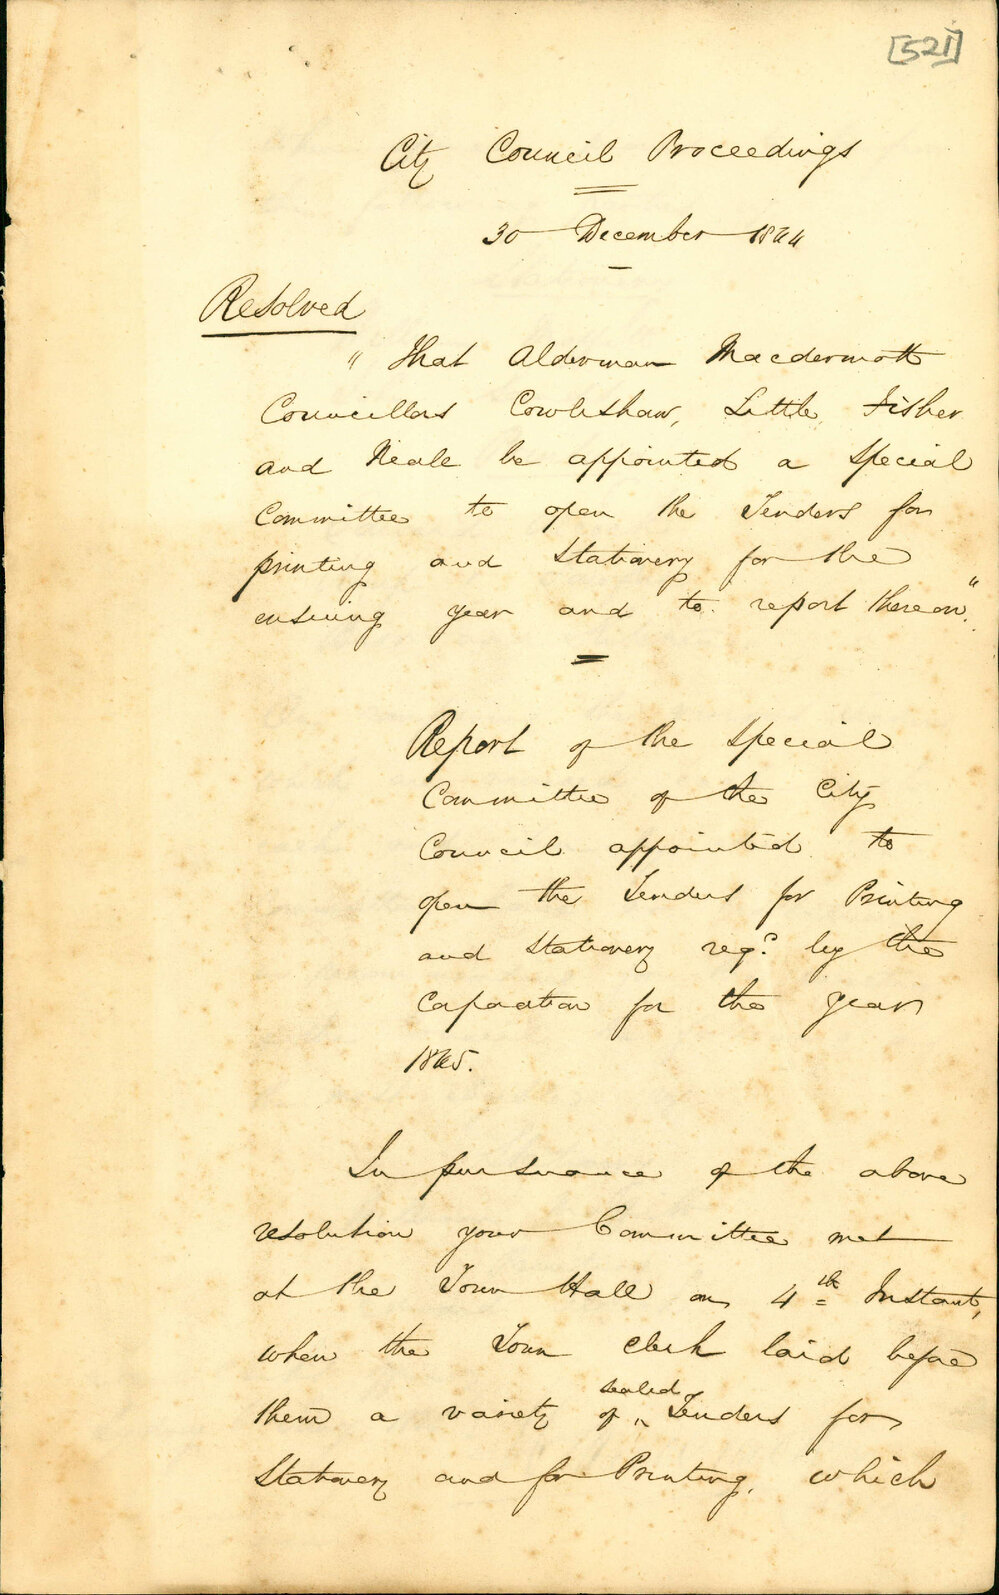 [521]
City Council Proceedings
30 December 1864
Resolved
" That Alderman Macdermott
Councillors Cowlishaw, Little, Fisher
and Neale be appointed a Special
Committee to open the Tenders for
printing and Stationery for the
ensuing year and to report thereon."
Report of the Special
Committee of the City
Council appointed to
open the Tenders for Printing
and Stationery reqd. by the
Corporation for the year
1865.
In pursuance of the above
resolution your Committee met
at the Town Hall on 4th Instant,
when the Town Clerk laid before
sealed
them a variety of " Tenders for
Stationery and for Printing, which